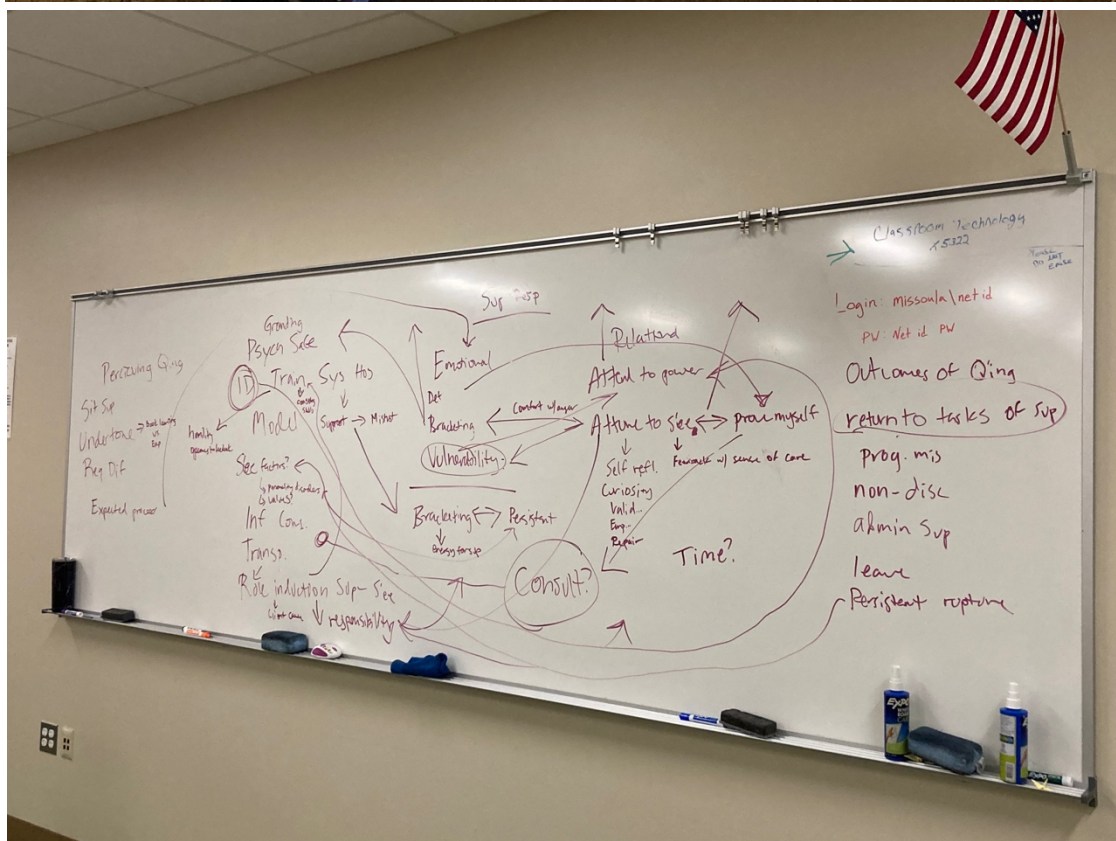 Perceiving Q'ing
Sit Sup
Undertone → Book learning
vs
Exp
Req Dif
Expected process
Granting
Psych Safe
ID
Train
Sys Hos
Model
Support → Mistrust
humility
See factors?
values?
Inf Cons.
Transp.
Role induction Sup - S'ee
client care
responsibility
Sup Resp
Emotional
Det
Bracketing
Comfort w/ anger
Vulnerability
Bracketing ↔ Persistent
Energy for s/e
Consult?
Relational
Attend to power
Attune to S'ee ↔ prove myself
Self refl.
Feedback w/ sense of care
Curiosity
Valid..
Emp..
Repair
Time?
Classroom Technology
x5322
Please
DO NOT
ERASE
Login: missoula\netid
PW: Net id PW
Outcomes of Q'ing
return to tasks of sup
prog. mis
non-disc
admin sup
leave
Persistent rupture
EXPO
EXPO